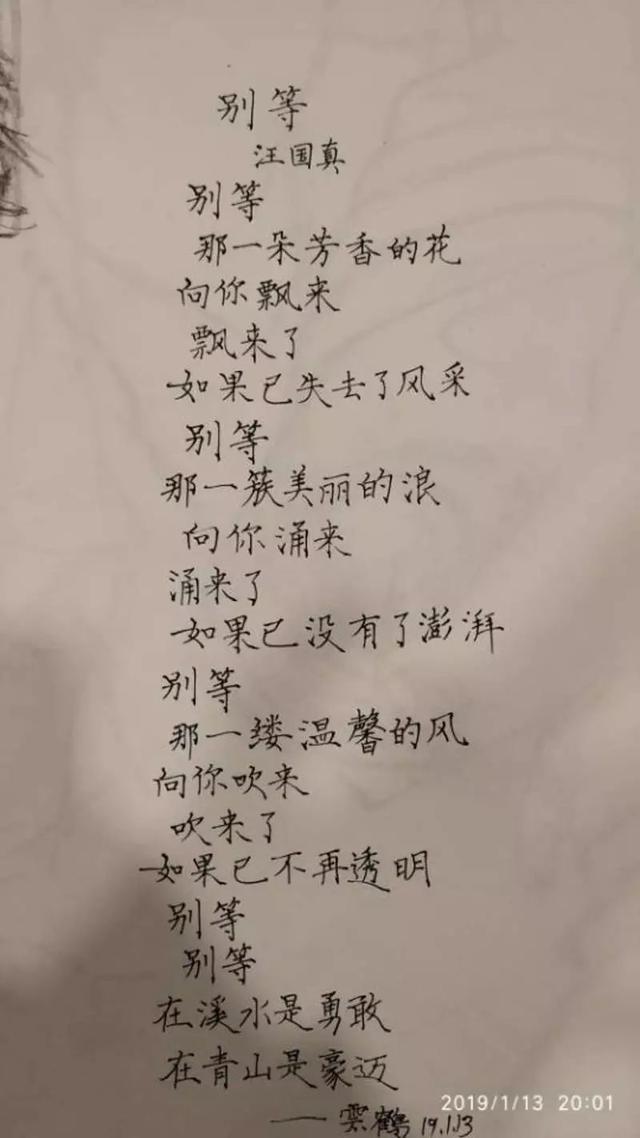 别等
汪国真
别等
那一朵芳香的花
向你飘来
飘来了
如果已失去了风采
别等
那一簇美丽的浪
向你涌来
涌来了
如果已没有了澎湃
别等
那一缕温馨的风
向你吹来
吹来了
如果已不再透明
别等
别等
在溪水是勇敢
在青山是豪迈
——雲鹤 19.1.13
2019/1/13 20:01